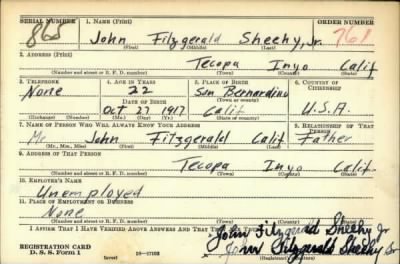 SERIAL NUMBER 1. NAME (Print) ORDER NUMBER
865 John Fitzgerald Sheehy, Jr. 761
(First) (Middle) (Last)
2. ADDRESS (Print)
Tecopa Inyo Calif
(Number and street or R. F. D. number) (Town) (County) (State)
3. TELEPHONE 4. AGE IN YEARS 5. PLACE OF BIRTH 6. COUNTRY OF CITIZENSHIP
None 22 San Bernardino
DATE OF BIRTH (Town or county)
Oct 27 1917 Calif U.S.A.
(Exchange) (Number) (Mo.) (Day) (Yr.) (State or country)
7. NAME OF PERSON WHO WILL ALWAYS KNOW YOUR ADDRESS 8. RELATIONSHIP OF THAT PERSON
Mr John Fitzgerald Calif Father
(Mr., Mrs., Miss) (First) (Middle) (Last)
9. ADDRESS OF THAT PERSON
Tecopa Inyo Calif.
(Number and street or R. F. D. number) (Town) (County) (State)
10. EMPLOYER'S NAME
Unemployed
11. PLACE OF EMPLOYMENT OR BUSINESS
None
(Number and street or R. F. D. number) (Town) (County) (State)
I AFFIRM THAT I HAVE VERIFIED ABOVE ANSWERS AND THAT THEY ARE TRUE.
John Fitzgerald Sheehy Jr
REGISTRATION CARD John Fitzgerald Sheehy Jr
D. S. S. Form 1